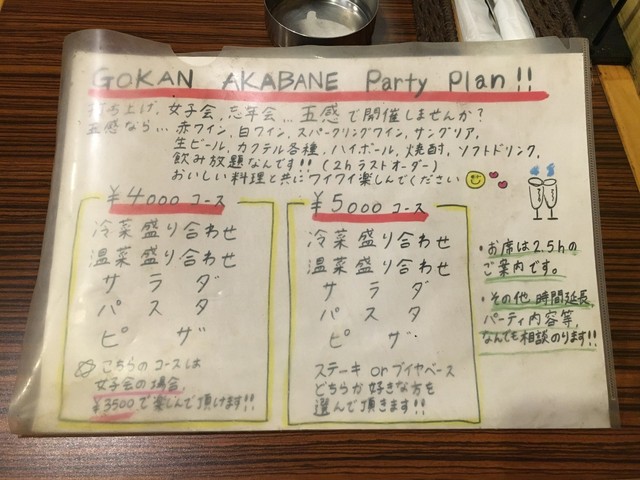 GOKAN AKABANE Party Plan!!
打ち上げ, 女子会, 忘年会... 五感で開催しませんか?
五感なら... 赤ワイン, 白ワイン, スパークリングワイン, サングリア,
生ビール, カクテル各種, ハイボール, 焼酎, ソフトドリンク,
飲み放題なんです!! (2hラストオーダー)
おいしい料理と共にワイワイ楽しんでください
¥4000 コース
冷菜盛り合わせ
温菜盛り合わせ
サラダ
パスタ
ピザ
こちらのコースは
女子会の場合,
¥3500で楽しんで頂けます!!
¥5000 コース
冷菜盛り合わせ
温菜盛り合わせ
サラダ
パスタ
ピザ
ステーキ or ブイヤベース
どちらか好きな方を
選んで頂きます!!
・お席は2.5hの
ご案内です。
・その他, 時間延長,
パーティ内容等,
なんでも相談のります!!